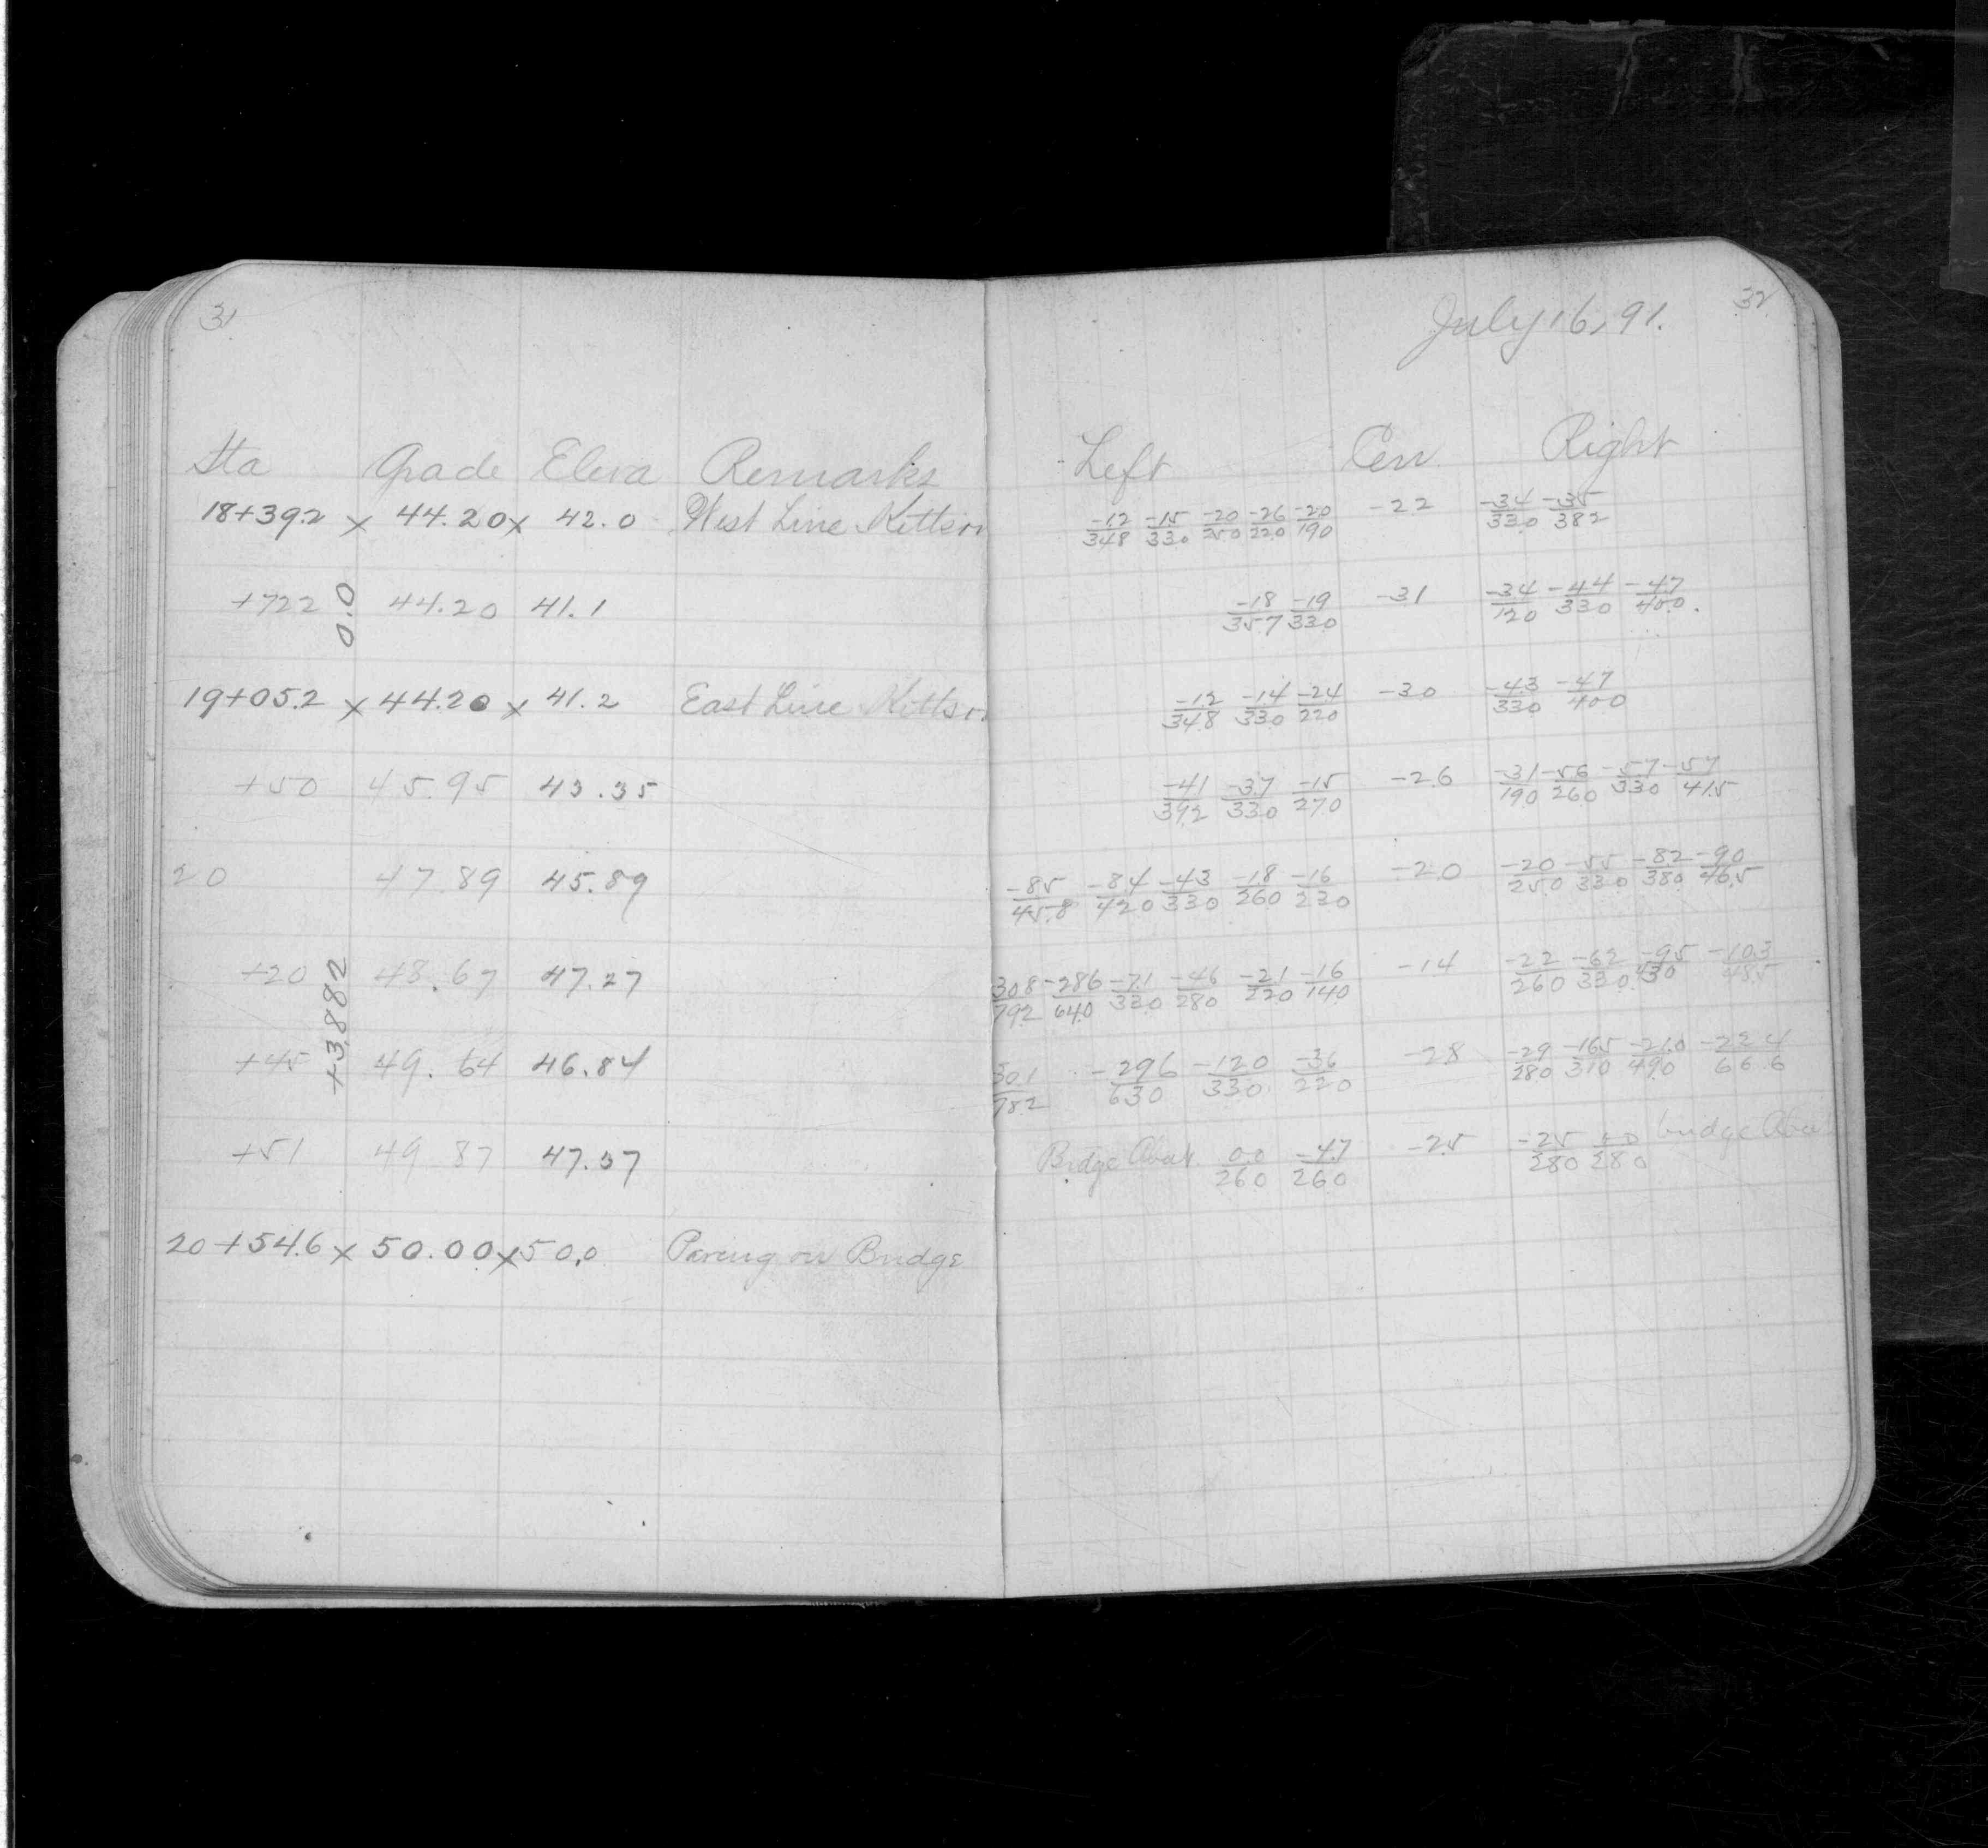 31
Sta Grade Eleva Remarks
18+39.2 x 44.20 x 42.0 West Line Kittson
+722 44.20 41.1
0.0
19+05.2 x 44.20 x 41.2 East Line Kittson
+50 45.95 43.35
20 47.89 45.89
+20 48.67 47.27
+3.882
+45 49.64 46.84
+51 49.87 47.37
20+54.6 x 50.00 x 50.0 Paving on Bridge
32
July 16, 91.
Left Cen Right
-12/348 -15/330 -20/250 -26/220 -20/190 -22 -34/330 -35/382
-18/357 -19/330 -31 -34/120 -44/330 -47/400
-12/348 -14/330 -24/220 -30 -43/330 -47/400
-41/392 -37/330 -15/270 -26 -31/190 -56/260 -57/330 -57/415
-85/45.8 -84/420 -43/330 -18/260 -16/230 -20 -20/250 -55/330 -82/380 -90/46.5
308/792 -286/640 -71/330 -46/280 -21/220 -16/140 -14 -22/260 -62/330 -95/430 -10.3/48.5
301/782 -296/630 -120/330 -36/220 -28 -29/280 -165/310 -21.0/490 -22.4/66.6
Bridge Abut. 0.0/260 -4.7/260 -25 -25/280 0.0/280 bridge Abut